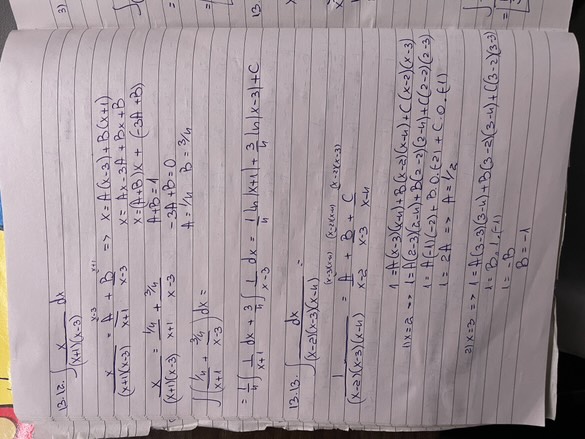 13.12. ∫ x/((x+1)(x-3)) dx
x/((x+1)(x-3)) = A/(x+1) + B/(x-3) => x = A(x-3) + B(x+1)
x-3 x+1
x = Ax - 3A + Bx + B
x = (A+B)x + (-3A+B)
x/((x+1)(x-3)) = (1/4)/(x+1) + (3/4)/(x-3)
A+B = 1
-3A+B = 0
A = 1/4 B = 3/4
∫((1/4)/(x+1) + (3/4)/(x-3)) dx =
= 1/4 ∫ 1/(x+1) dx + 3/4 ∫ 1/(x-3) dx = 1/4 ln|x+1| + 3/4 ln|x-3| + C
13.13. ∫ dx/((x-2)(x-3)(x-4)) =
(x-3)(x-4) (x-2)(x-4) (x-2)(x-3)
1/((x-2)(x-3)(x-4)) = A/(x-2) + B/(x-3) + C/(x-4)
1 = A(x-3)(x-4) + B(x-2)(x-4) + C(x-2)(x-3)
1) x=2 => 1 = A(2-3)(2-4) + B(2-2)(2-4) + C(2-2)(2-3)
1 = A(-1)(-2) + B.0.(-2) + C.0.(-1)
1 = 2A => A = 1/2
2) x=3 => 1 = A(3-3)(3-4) + B(3-2)(3-4) + C(3-2)(3-3)
1 = B.1.(-1)
1 = -B
B = -1
3)
13.